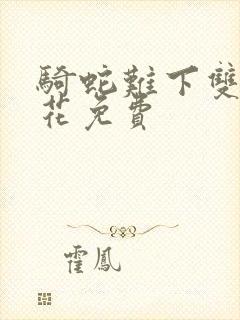 騎蛇難下雙
花免費
霍鳳